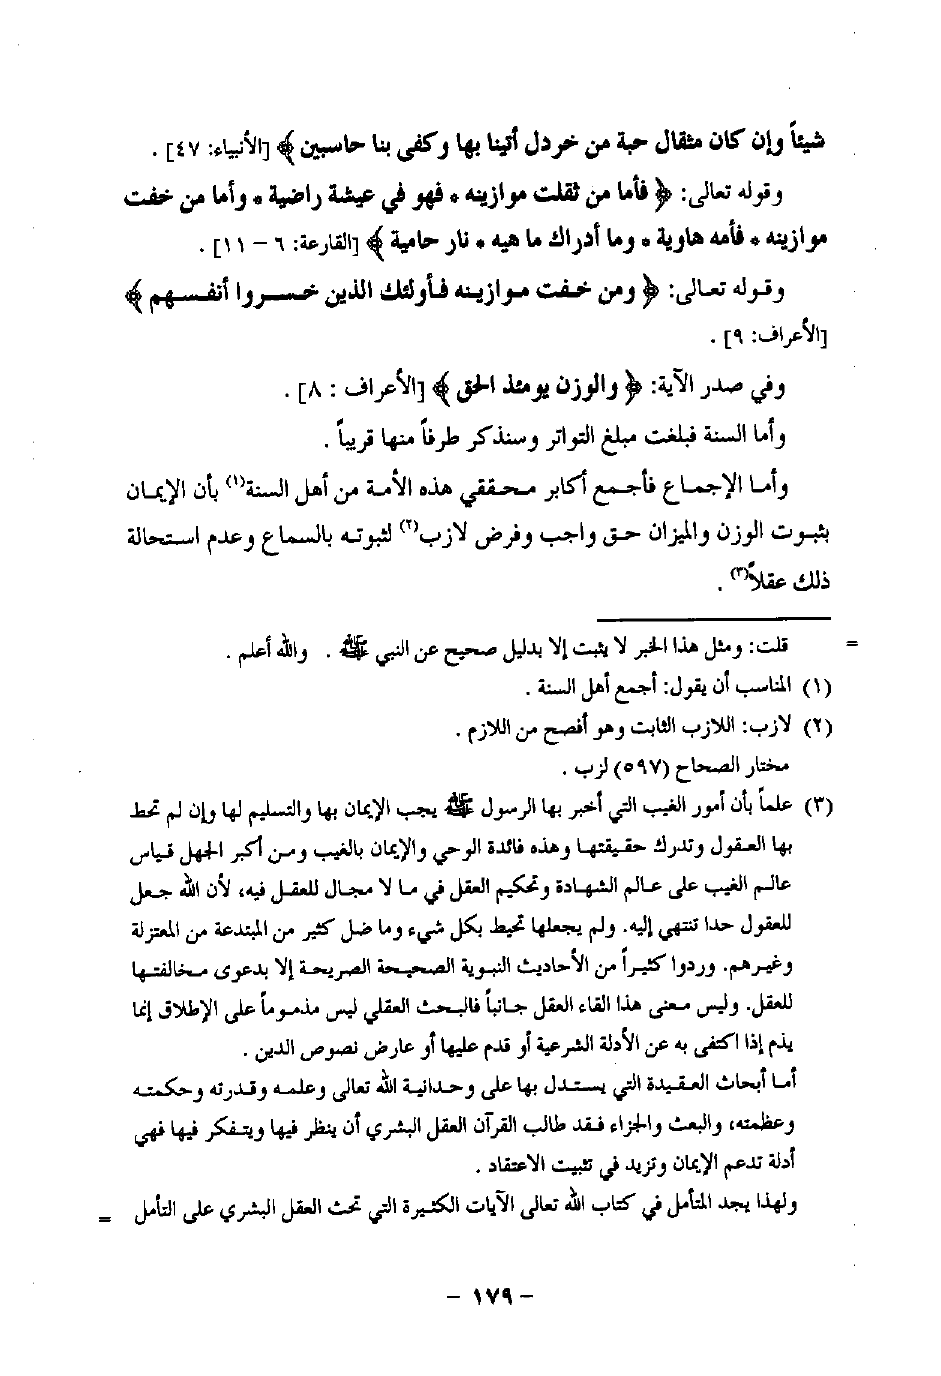 شيئاً وإن كان مثقال حبة من خردل أتينا بها وكفى بنا حاسبين ﴾ [الأنبياء: ٤٧] .
وقوله تعالى: ﴿ فأما من ثقلت موازينه * فهو في عيشة راضية * وأما من خفت
موازينه * فأمه هاوية * وما أدراك ما هيه * نار حامية ﴾ [القارعة: ٦ – ١١] .
وقوله تعالى: ﴿ ومن خفت موازينه فأولئك الذين خسروا أنفسهم ﴾
[الأعراف: ٩] .
وفي صدر الآية: ﴿ والوزن يومئذ الحق ﴾ [الأعراف : ٨] .
وأما السنة فبلغت مبلغ التواتر وسنذكر طرفاً منها قريباً .
وأما الإجماع فأجمع أكابر محققي هذه الأمة من أهل السنة(١) بأن الإيمان
بثبوت الوزن والميزان حق واجب وفرض لازب(٢) لثبوته بالسماع وعدم استحالة
ذلك عقلاً(٣) .
= قلت: ومثل هذا الخبر لا يثبت إلا بدليل صحيح عن النبي ﷺ . والله أعلم .
(١) المناسب أن يقول: أجمع أهل السنة .
(٢) لازب: اللازب الثابت وهو أفصح من اللازم .
مختار الصحاح (٥٩٧) لزب .
(٣) علماً بأن أمور الغيب التي أخبر بها الرسول ﷺ يجب الإيمان بها والتسليم لها وإن لم تحط
بها العقول وتدرك حقيقتها وهذه فائدة الوحي والإيمان بالغيب ومن أكبر الجهل قياس
عالم الغيب على عالم الشهادة وتحكيم العقل في ما لا مجال للعقل فيه، لأن الله جعل
للعقول حدا تنتهي إليه. ولم يجعلها تحيط بكل شيء وما ضل كثير من المبتدعة من المعتزلة
وغيرهم. وردوا كثيراً من الأحاديث النبوية الصحيحة الصريحة إلا بدعوى مخالفتها
للعقل. وليس معنى هذا القاء العقل جانباً فالبحث العقلي ليس مذموماً على الإطلاق إنما
يذم إذا اكتفى به عن الأدلة الشرعية أو قدم عليها أو عارض نصوص الدين .
أما أبحاث العقيدة التي يستدل بها على وحدانية الله تعالى وعلمه وقدرته وحكمته
وعظمته، والبعث والجزاء فقد طالب القرآن العقل البشري أن ينظر فيها ويتفكر فيها فهي
أدلة تدعم الإيمان وتزيد في تثبيت الاعتقاد .
ولهذا يجد المتأمل في كتاب الله تعالى الآيات الكثيرة التي تحث العقل البشري على التأمل =
– ١٧٩ –